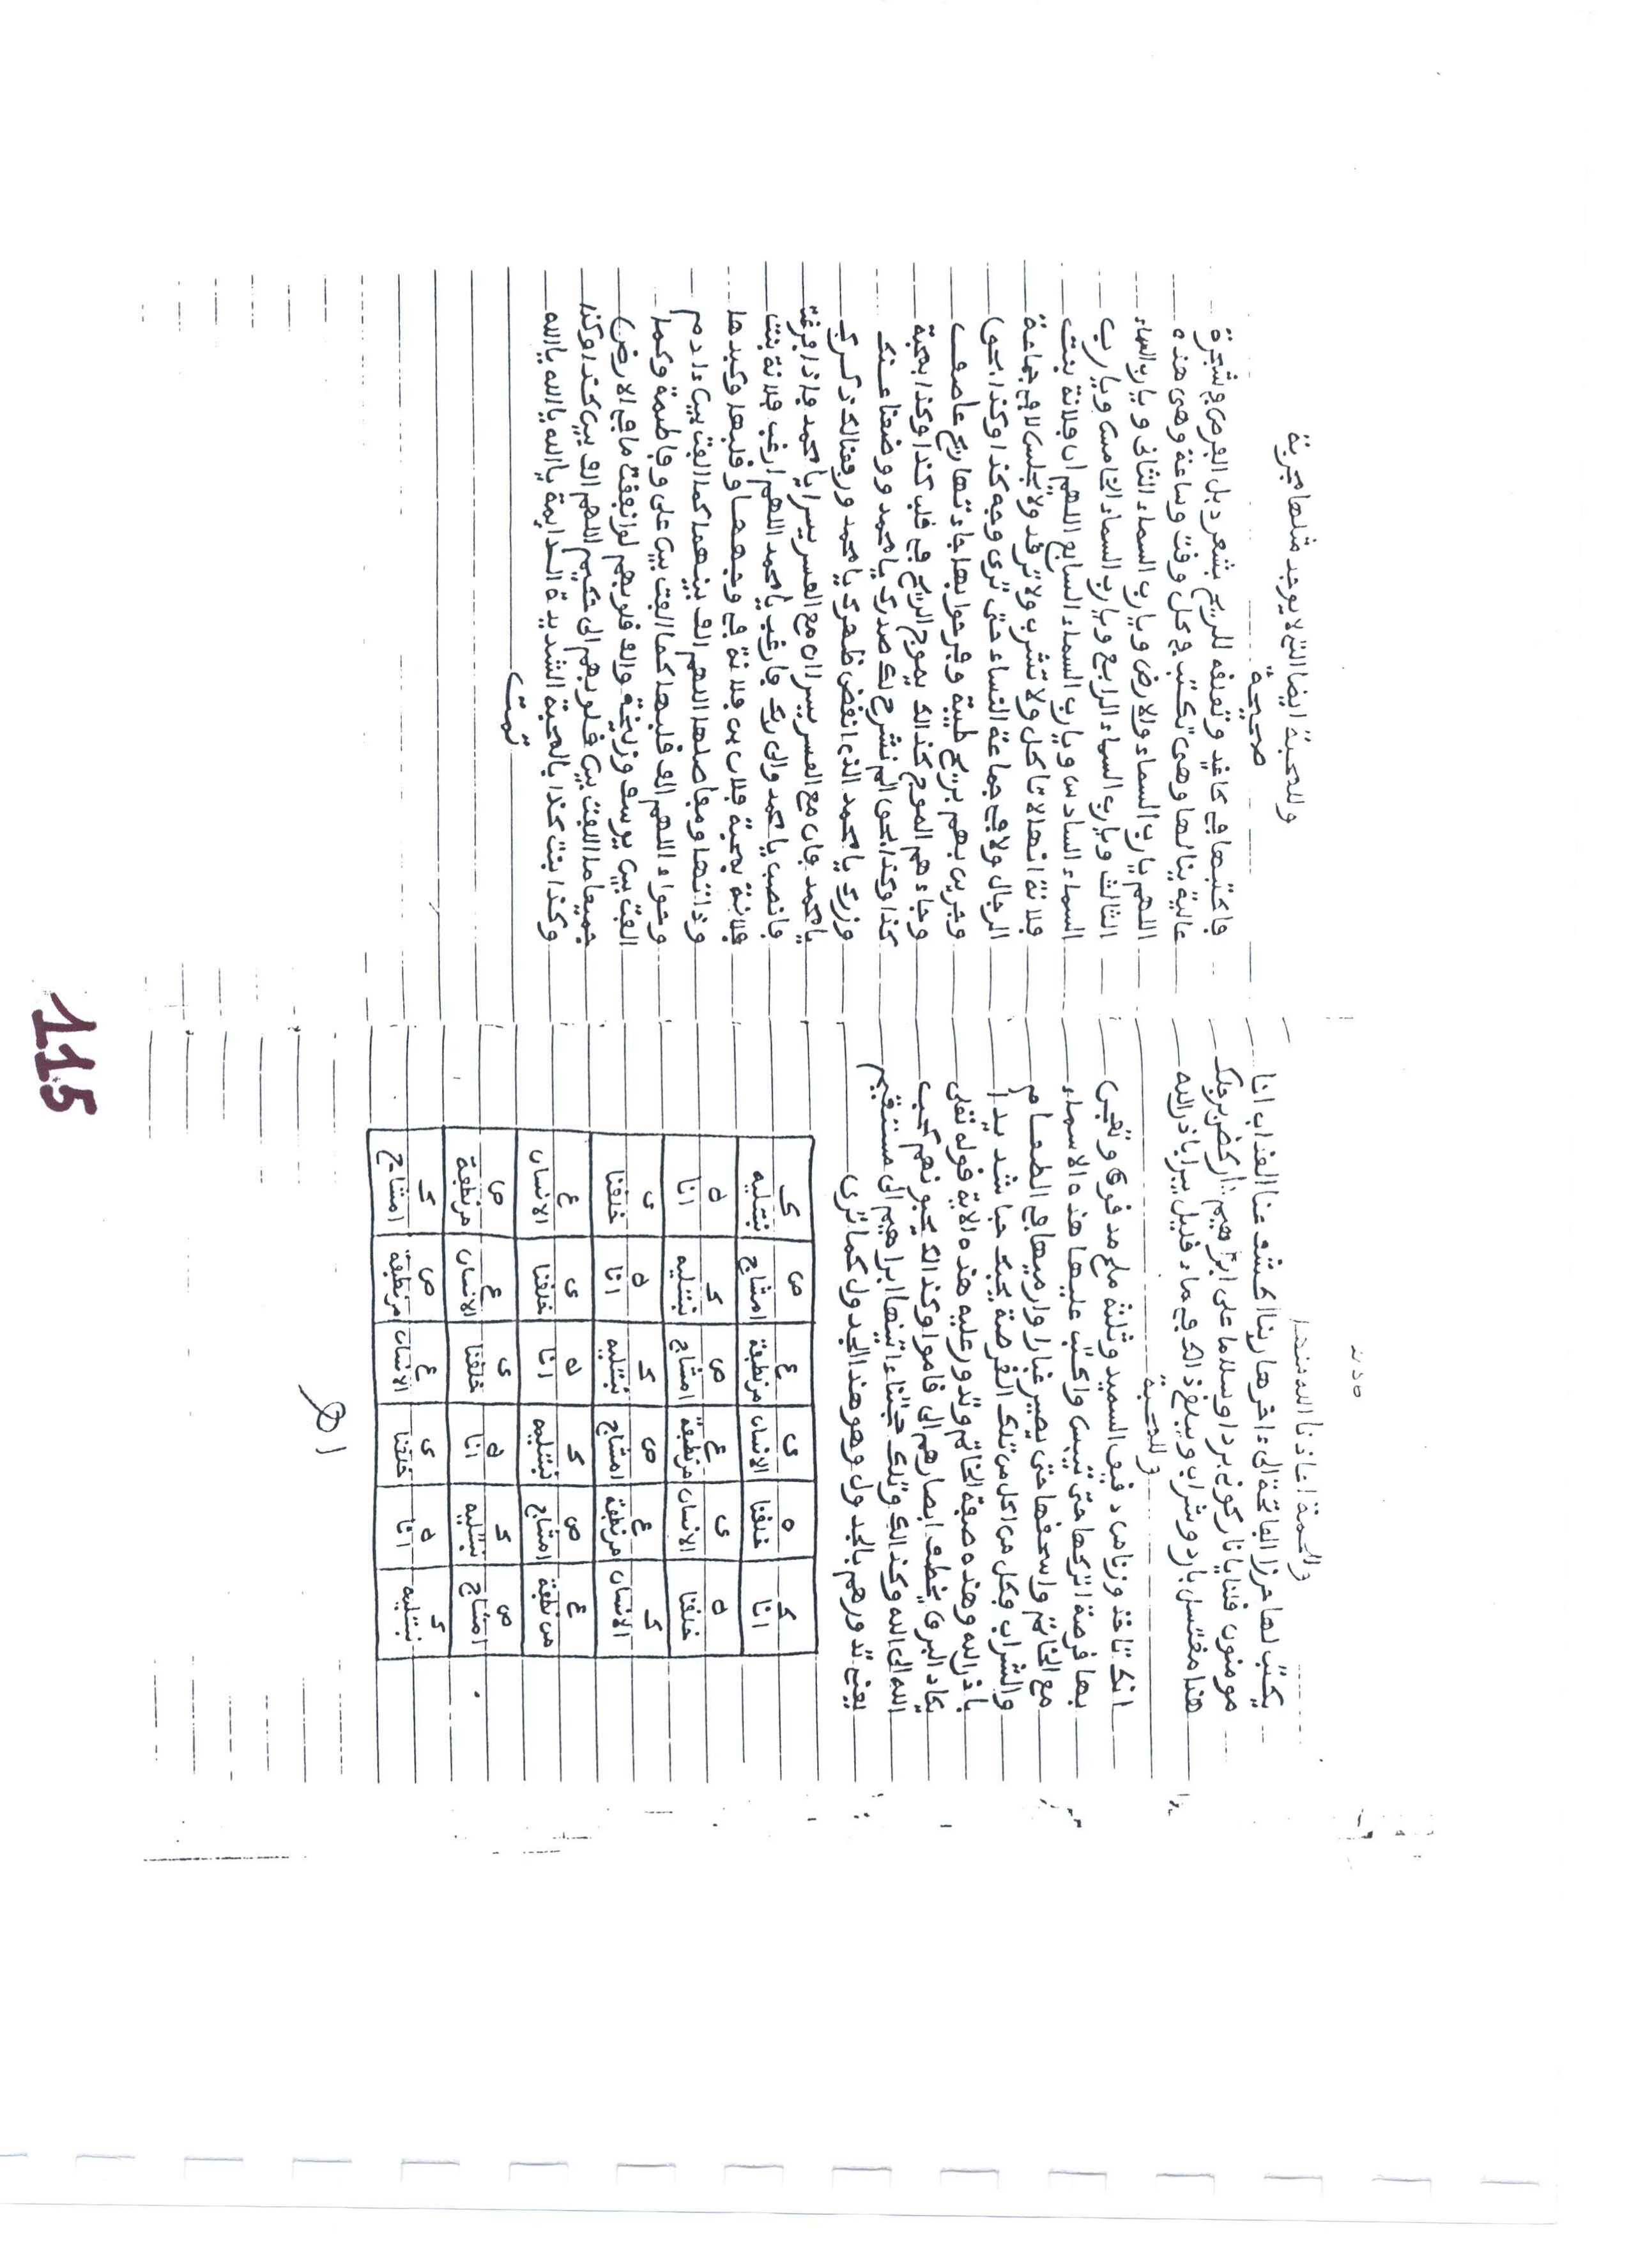 والحمة اعاذنا الله منها
يكتب لها حرزا الفاتحة الى ءاخرها ربنا اكشف عنا العذاب انا
مومنون قلنا يانار كوني بردا وسلاما على ابراهيم اركض برجلك
هذا مغتسل بارد وشراب ويبلع ذالك في ماء قليل يبرا باذن الله
وللمحبة
انك تاخذ وزنا من دقيق السميد وثلثه ملح مدقوق وتعجن
بها قرصة اتركها حتى تيبس واكتب عليها هذه الاسماء
مع الخاتم واسحقها حتى يصير غبارا وارميها في الطعام
والشراب فكل من اكل من تلك القرصة يحبك حبا شديدا
باذن الله وهذه صفة الخاتم وتدور عليه هذه الاية قوله تعلى
يكاد البرق يخطف ابصارهم الى قاموا وكذالك يحبونهم كحب
الله الى الله وكذالك وتلك حجتنا ءاتينها ابراهيم الى مستقيم
يعني تدورهم بالجدول وهو هذا الجدول كما ترى
ك انا ه خلقنا ي الانسان ع من نطفة ص امشاج ك نبتليه
ه خلقنا ي الانسان ع من نطفة ص امشاج ك نبتليه ه انا
ك الانسان ع من نطفة ص امشاج ك نبتليه ه انا ي خلقنا
ع من نطفة ص امشاج ك نبتليه ه انا ي خلقنا ع الانسان
ص امشاج ك نبتليه ه انا ي خلقنا ع الانسان ص من نطفة
ك نبتليه ه انا ي خلقنا ع الانسان ص من نطفة ك امشاج
وللمحبة ايضا التي لا يوجد مثلها مجربة
صحيحة
فاكتبها في كاغيد وتعلقه للريح بشعر ذيل الفرس في شجرة
عالية ينالها وهي تكتب في كل وقت وساعة وهي هذه
اللهم يا رب السماء والارض ويا رب السماء الثاني ويا رب السماء
الثالث ويا رب السماء الرابع ويا رب السماء الخامس ويا رب
السماء السادس ويا رب السماء السابع اللهم ان فلانة بنت
فلانة انها لا تاكل ولا تشرب ولا ترقد ولا تجلس لا في جماعة
الرجال ولا في جماعة النساء حتى ترى وجه كذا وكذا بحق
وجرين بهم بريح طيبة وفرحوا بها جاءتها ريح عاصف
وجاءهم الموج كذالك يموج الريح في قلب كذا وكذا بمحبة
كذا وكذا بحق الم نشرح لك صدرك يا محمد ووضعنا عنك
وزرك يا محمد الذي انقض ظهرك يا محمد ورفعنا لك ذكرك
يا محمد فان مع العسر يسرا ان مع العسر يسرا يا محمد فاذا فرغت
فانصب يا محمد والى ربك فارغب يا محمد اللهم ارغب فلانة بنت
فلانة بمحبة فلان بن فلانة في وجهها وقلبها وكبدها
وذاتها ومفاصلها اللهم الف بينهما كما الفت بين ءادم
وحواء اللهم الف قلبها كما الفت بين علي وفاطمة وكما
الفت بين يوسف وزليخة والف قلوبهم لو انفقت ما في الارض
جميعا ما الفت بين قلوبهم الى حكيم اللهم الف بين كذا وكذا
وكذا بنت كذا بالمحبة الشديدة الدايمة يا الله يا الله يا الله
تمت
115